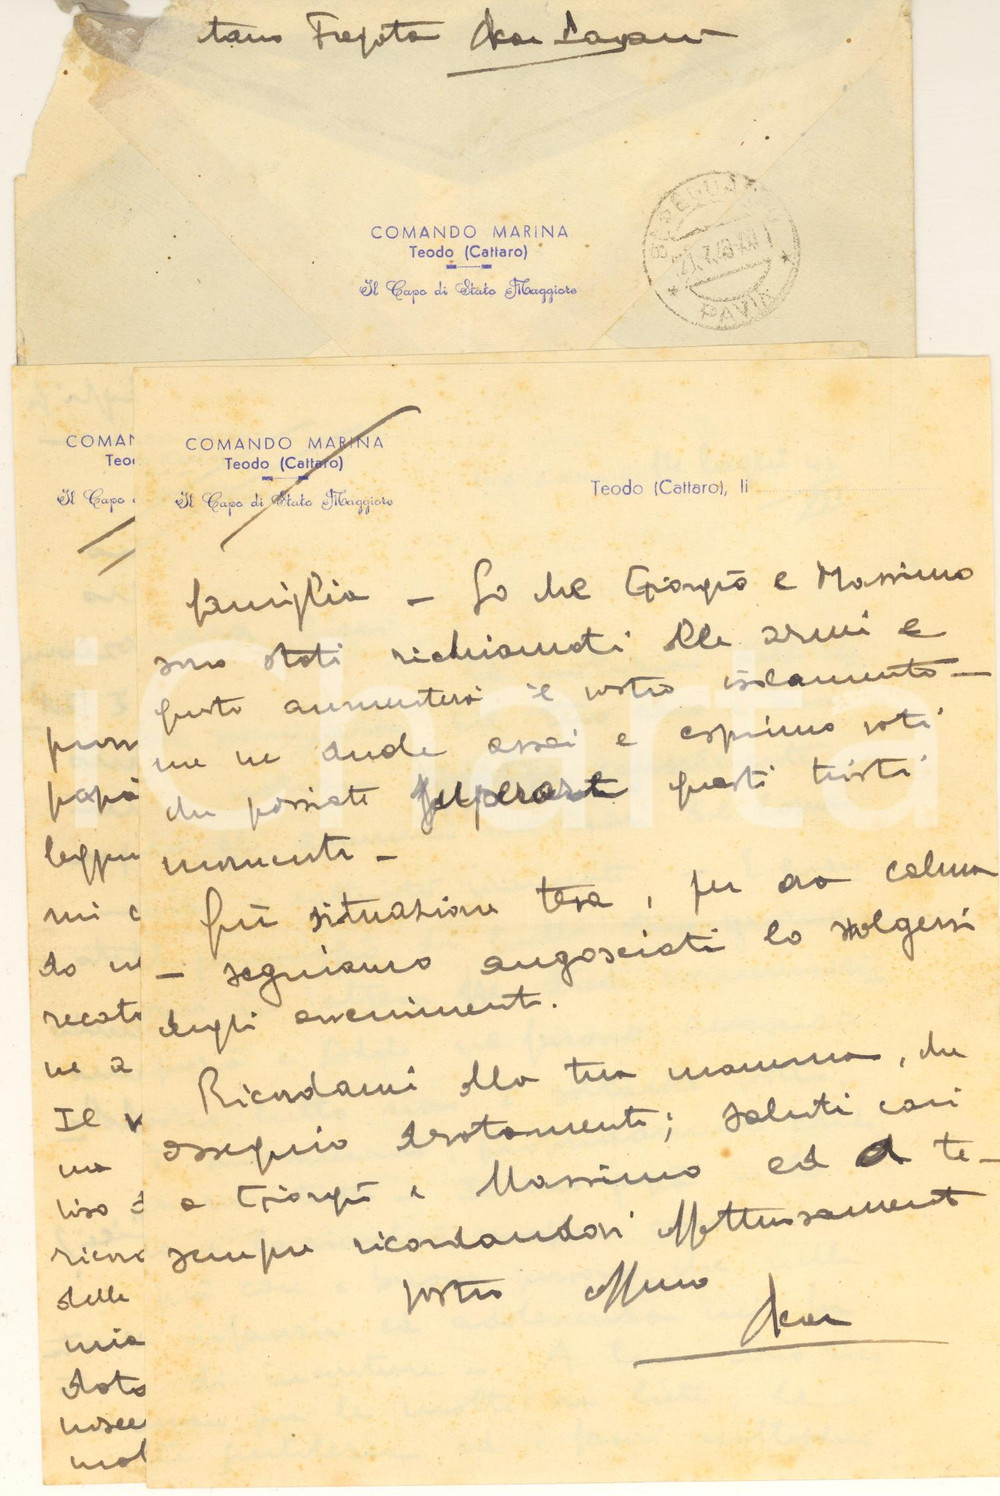 tano Fregata Oscar
COMANDO MARINA
Teodo (Cattaro)
Il Capo di Stato Maggiore
BASELUZZO
21.7.43-XXI
PAVIA
COMAN
Teo
Il Capo
COMANDO MARINA
Teodo (Cattaro)
Il Capo di Stato Maggiore
Teodo (Cattaro), li
famiglia - So che Giorgio e Massimo
sono stati richiamati alle armi e
questo aumenterà il vostro isolamento -
me ne duole assai e esprimo voti
che possiate superare questi tristi
momenti -
Qui situazione tesa, per ora calma
- seguiamo angosciati lo svolgersi
degli avvenimenti.
Ricordami alla tua mamma, che
ossequio devotamente; saluti cari
a Giorgio e Massimo ed a te -
sempre ricordandovi affettuosamente
vostro aff.mo
Oscar
papà
leggu
mi c
do
recato
ne a
Il v
ma
liso d
ricor
delle
mia
dota
mol
iCharta